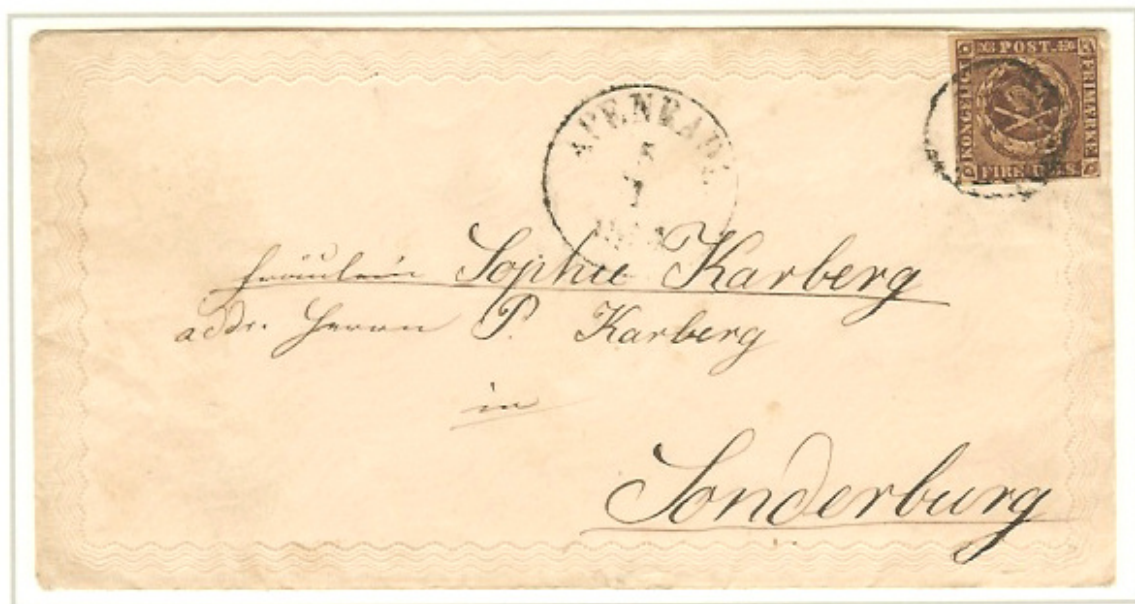 KONGELIGT POST FRIMÆRKE
FIRE R.B.S.
APENRADE
5
1
Fräulein Sophie Karberg
addr. Herrn P. Karberg
in
Sonderburg